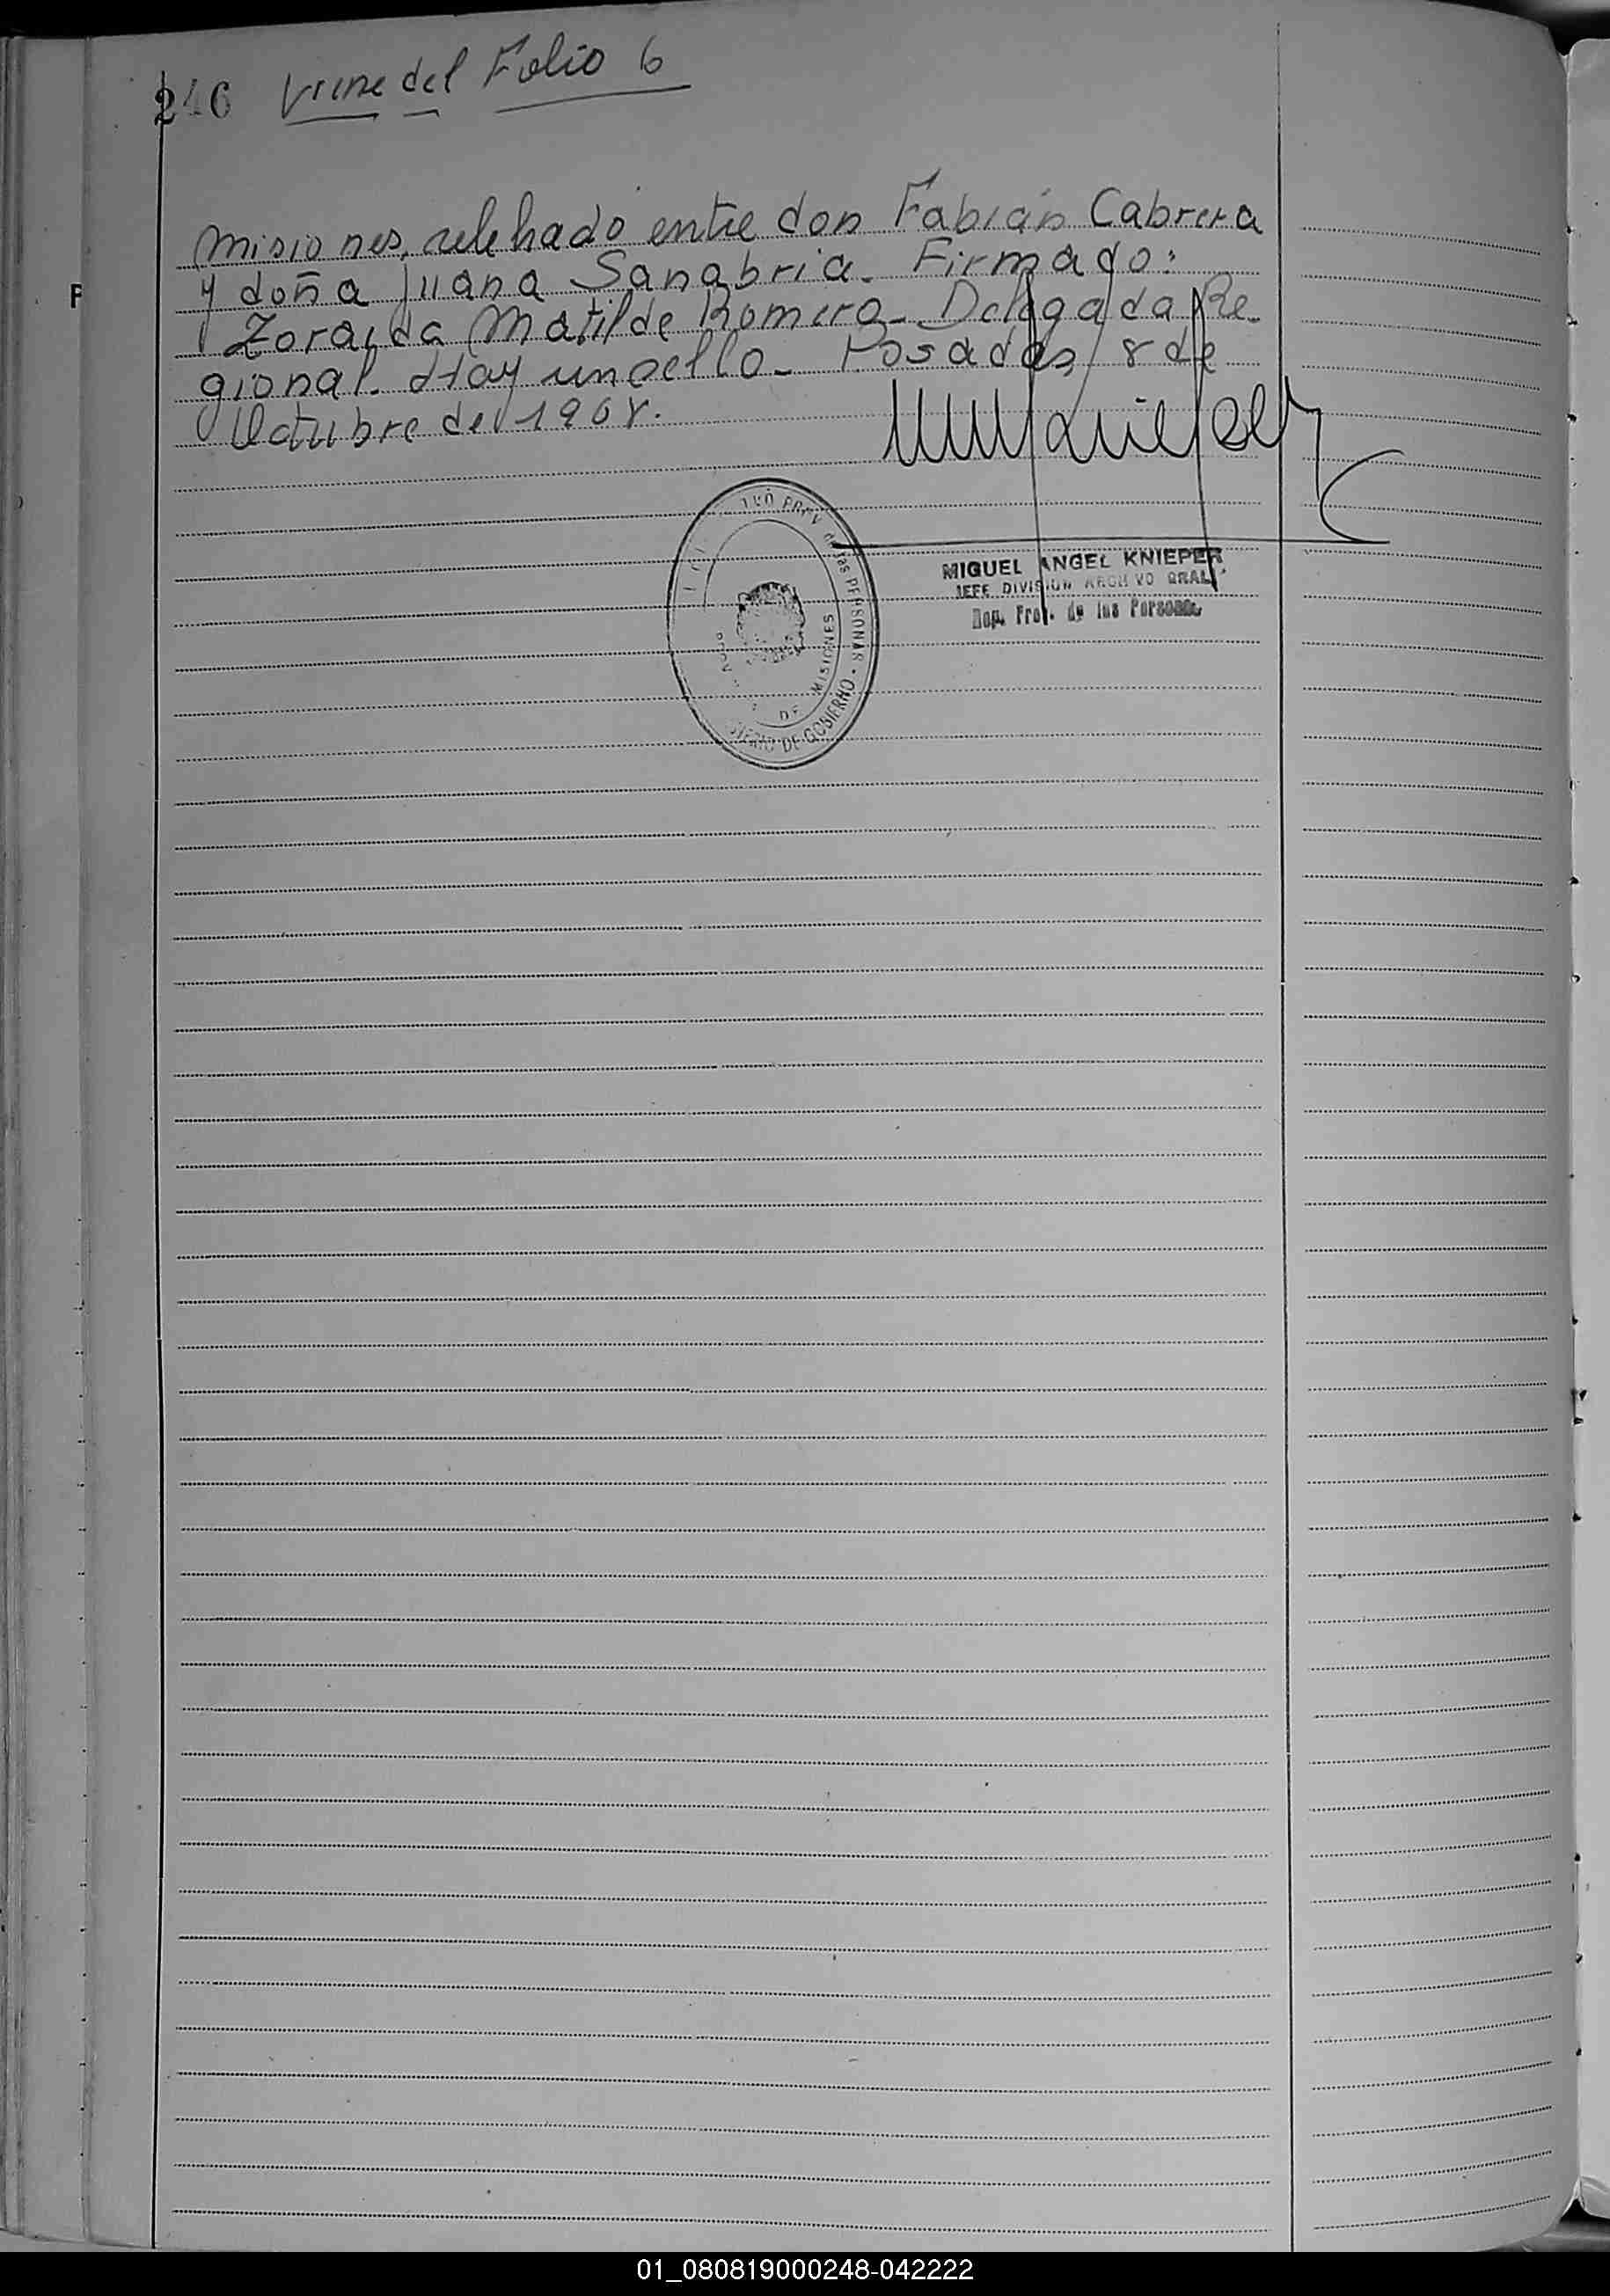 246 Viene del Folio 6
Misiones, celebrado entre don Fabián Cabrera
y doña Juana Sanabria. Firmado:
Zoraida Matilde Romero - Delegada Re-
gional. Hay un sello - Posadas, 8 de
Octubre de 1968.
MIGUEL ANGEL KNIEPER
JEFE DIVISION ARCHIVO GRAL.
Rep. Prov. de las Personas
PROV de las PERSONAS - MINISTERIO DE GOBIERNO
DE MISIONES
F
01_080819000248-042222